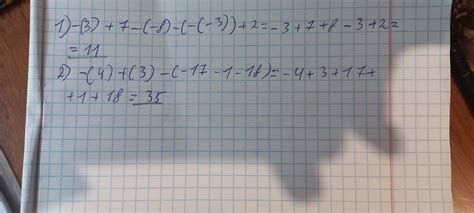 1) -(3) + 7 - (-8) - (-(-3)) + 2 = -3 + 7 + 8 - 3 + 2 =
= 11
2) -(4) + (3) - (-17 - 1 - 18) = -4 + 3 + 17 +
+ 1 + 18 = 35